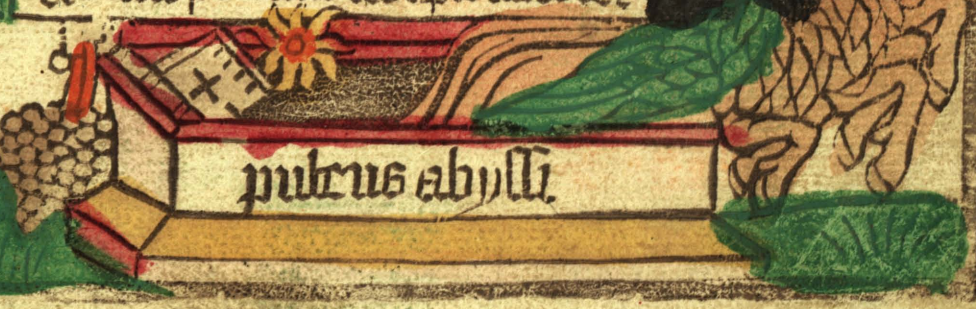 puteus abyssi.